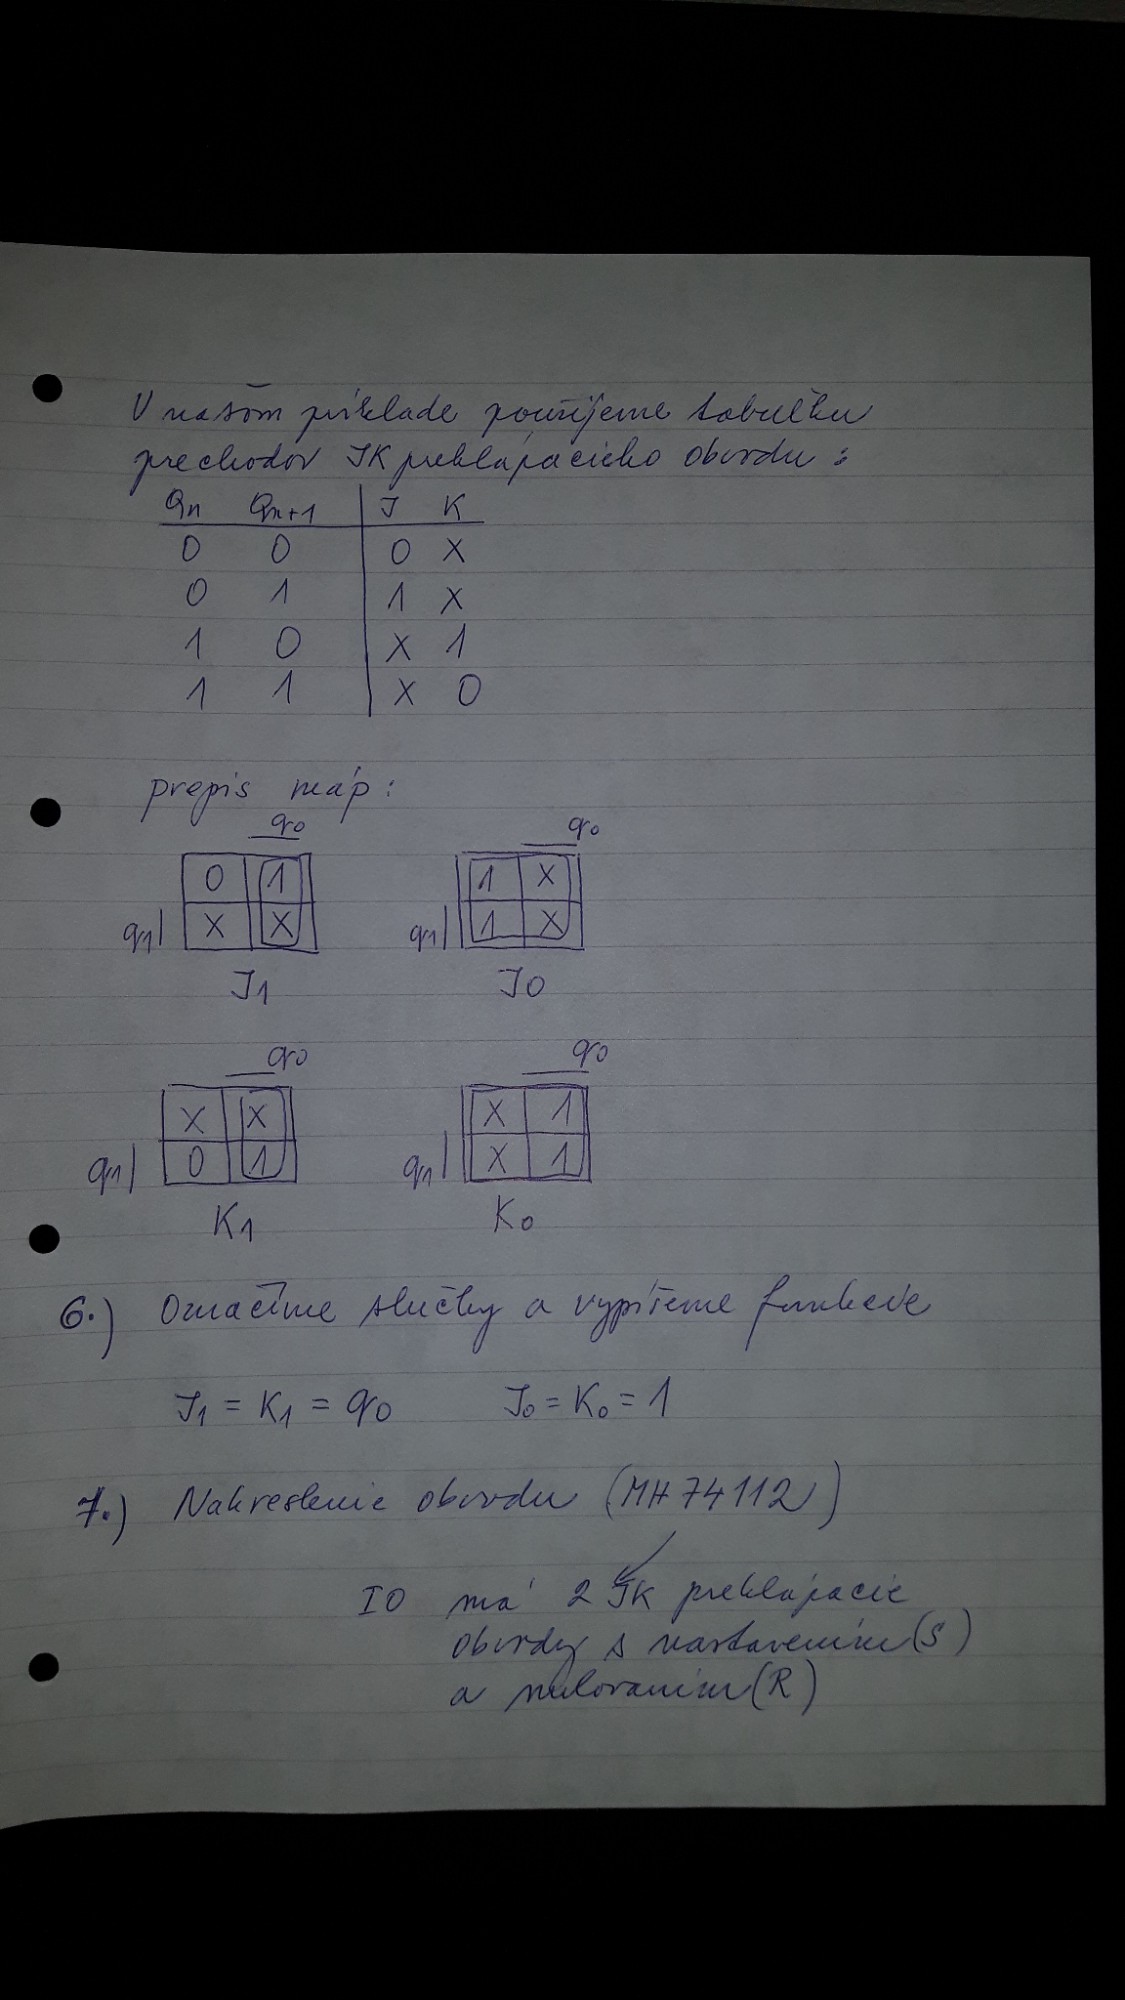 V našom príklade použijeme tabuľku
prechodov JK preklápacieho obvodu :
Qn Qn+1 J K
0 0 0 X
0 1 1 X
1 0 X 1
1 1 X 0
prepis máp :
q0 q0
0 1 1 X
q1 X X q1 1 X
J1 J0
q0 q0
X X X 1
q1 0 1 q1 X 1
K1 K0
6.) Označíme slučky a vypíšeme funkcie
J1 = K1 = q0 J0 = K0 = 1
7.) Nakreslenie obvodu (MH 74112)
IO má 2 JK preklápacie
obvody s nastavením (S)
a nulovaním (R)